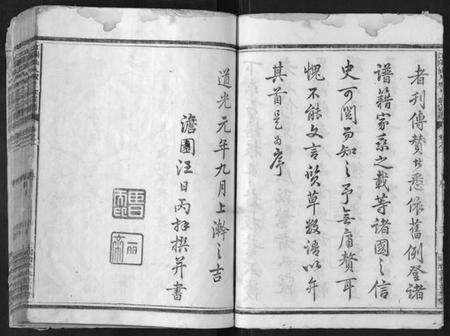 者刊傳贊比悉依舊例登諸
譜籍家乘之載等諸國之信
史可閱而知之予無庸贅耳
愧不能文言質草數語以弁
其首是為序
道光元年九月上澣之吉
澹園汪日丙拜撰并書